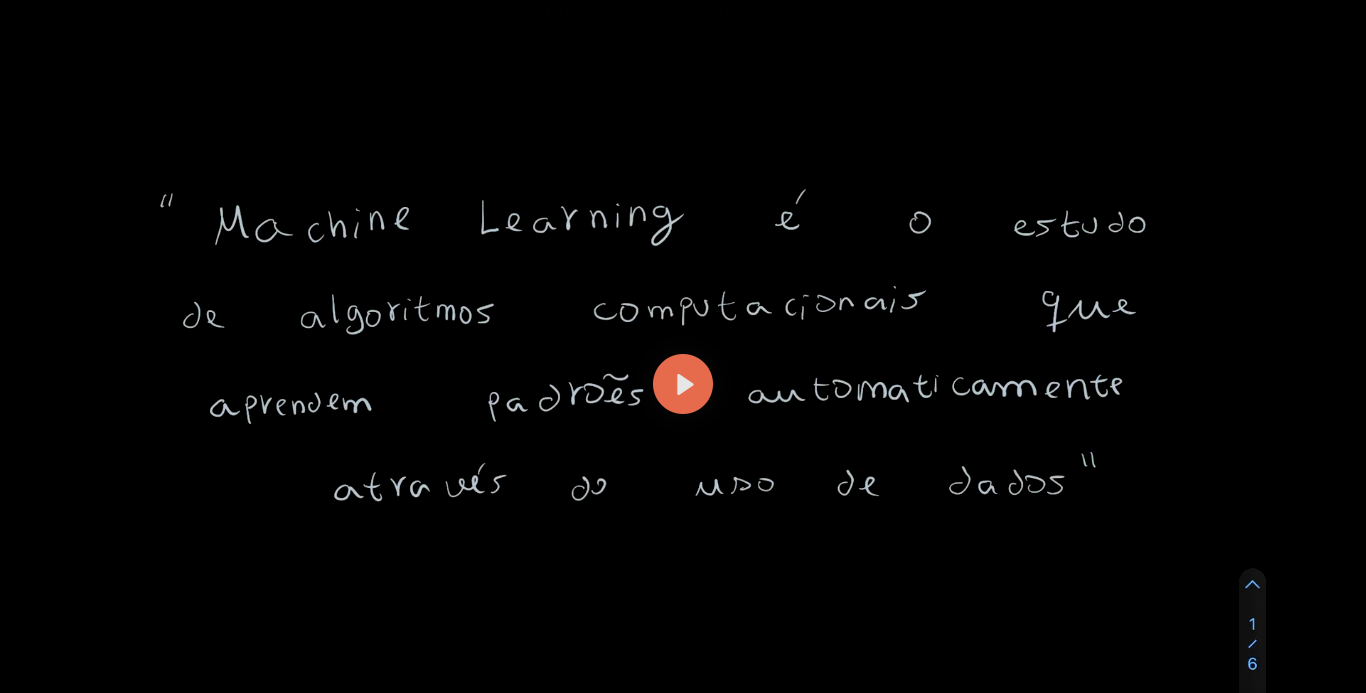 "Machine Learning é o estudo
de algoritmos computacionais que
aprendem padroẽs automaticamente
através do uso de dados"
1
/
6